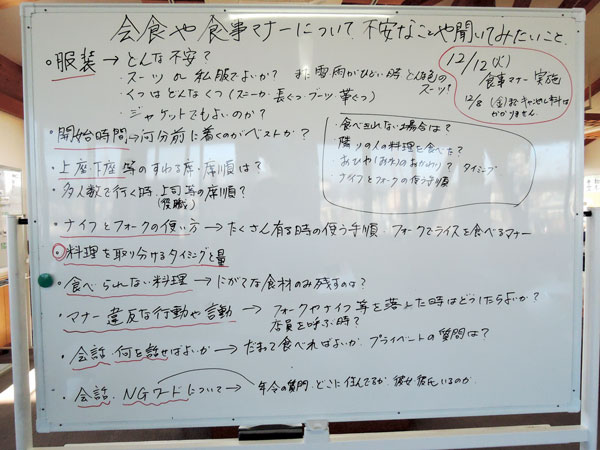 会食や食事マナーについて、不安なことや聞いてみたいこと
・服装→・どんな不安?
・スーツ or 私服でよいか? また雪雨がひどい時どんな色のスーツ?
・くつはどんなくつ(スニーカー・長ぐつ・ブーツ・革ぐつ)
・ジャケットでもよいのか?
12/12(火)
食事マナー実施
12/8(金)までキャンセル料はかかりません
・開始時間→何分前に着くのがベストか?
・上座・下座等のすわる席・席順は?
・多人数で行く時、上司等の席順?
(役職)
・食べきれない場合は?
・隣りの人の料理を食べた?
(お水)のおかわり? タイミング
・ナイフとフォークの使う手順
・ナイフとフォークの使い方→たくさん有る時の使う手順・フォークでライスを食べるマナー
・料理を取り分けるタイミングと量
・食べられない料理→にがてな食材のみ残すのは?
・マナー違反な行動や言動→フォークやナイフ等を落した時はどうしたらよいか?
店員を呼ぶ時?
・会話・何を話せばよいか→だまって食べればよいか、プライベートの質問は?
・会話・NGワードについて→年令の質問・どこに住んでるか、彼女彼氏いるのか、